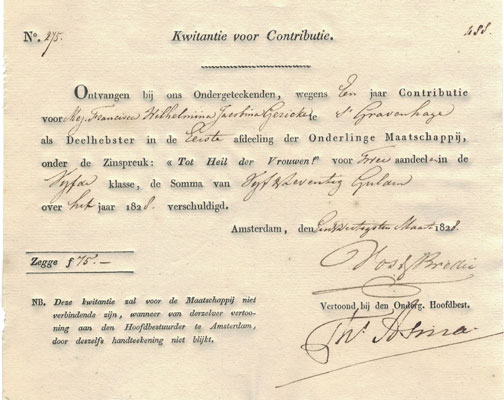 Nº. 275. Kwitantie voor Contributie. 488.
Ontvangen bij ons Ondergeteekenden, wegens Een jaar Contributie
voor Mej. Francisca Wilhelmina Jacobina Gericke te 's Gravenhage
als Deelhebster in de Eerste afdeeling der Onderlinge Maatschappij,
onder de Zinspreuk: « Tot Heil der Vrouwen!" voor Twee aandeelen in de
Vyfde klasse, de Somma van Vyf & Zeventig Gulden
over het jaar 1828. verschuldigd.
Amsterdam, den Maart 1828.
Zegge ƒ 75.—
Vos & Brodie
NB. Deze kwitantie zal voor de Maatschappij niet
verbindende zijn, wanneer van derzelver vertoo-
ning aan den Hoofdbestuurder te Amsterdam,
door deszelfs handteekening niet blijkt.
Vertoond, bij den Onderg. Hoofdbest.